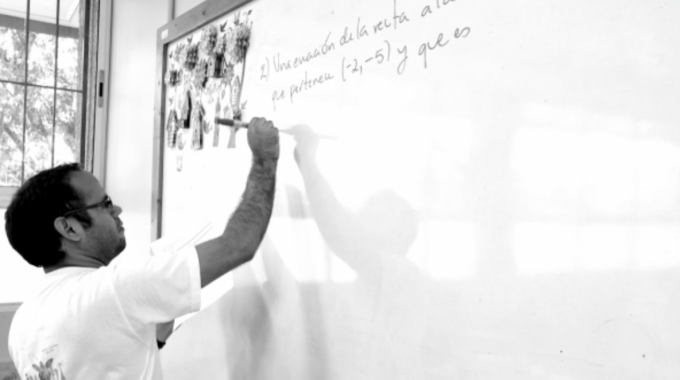 2) Una ecuación de la recta a la
que pertenece (-2,-5) y que es